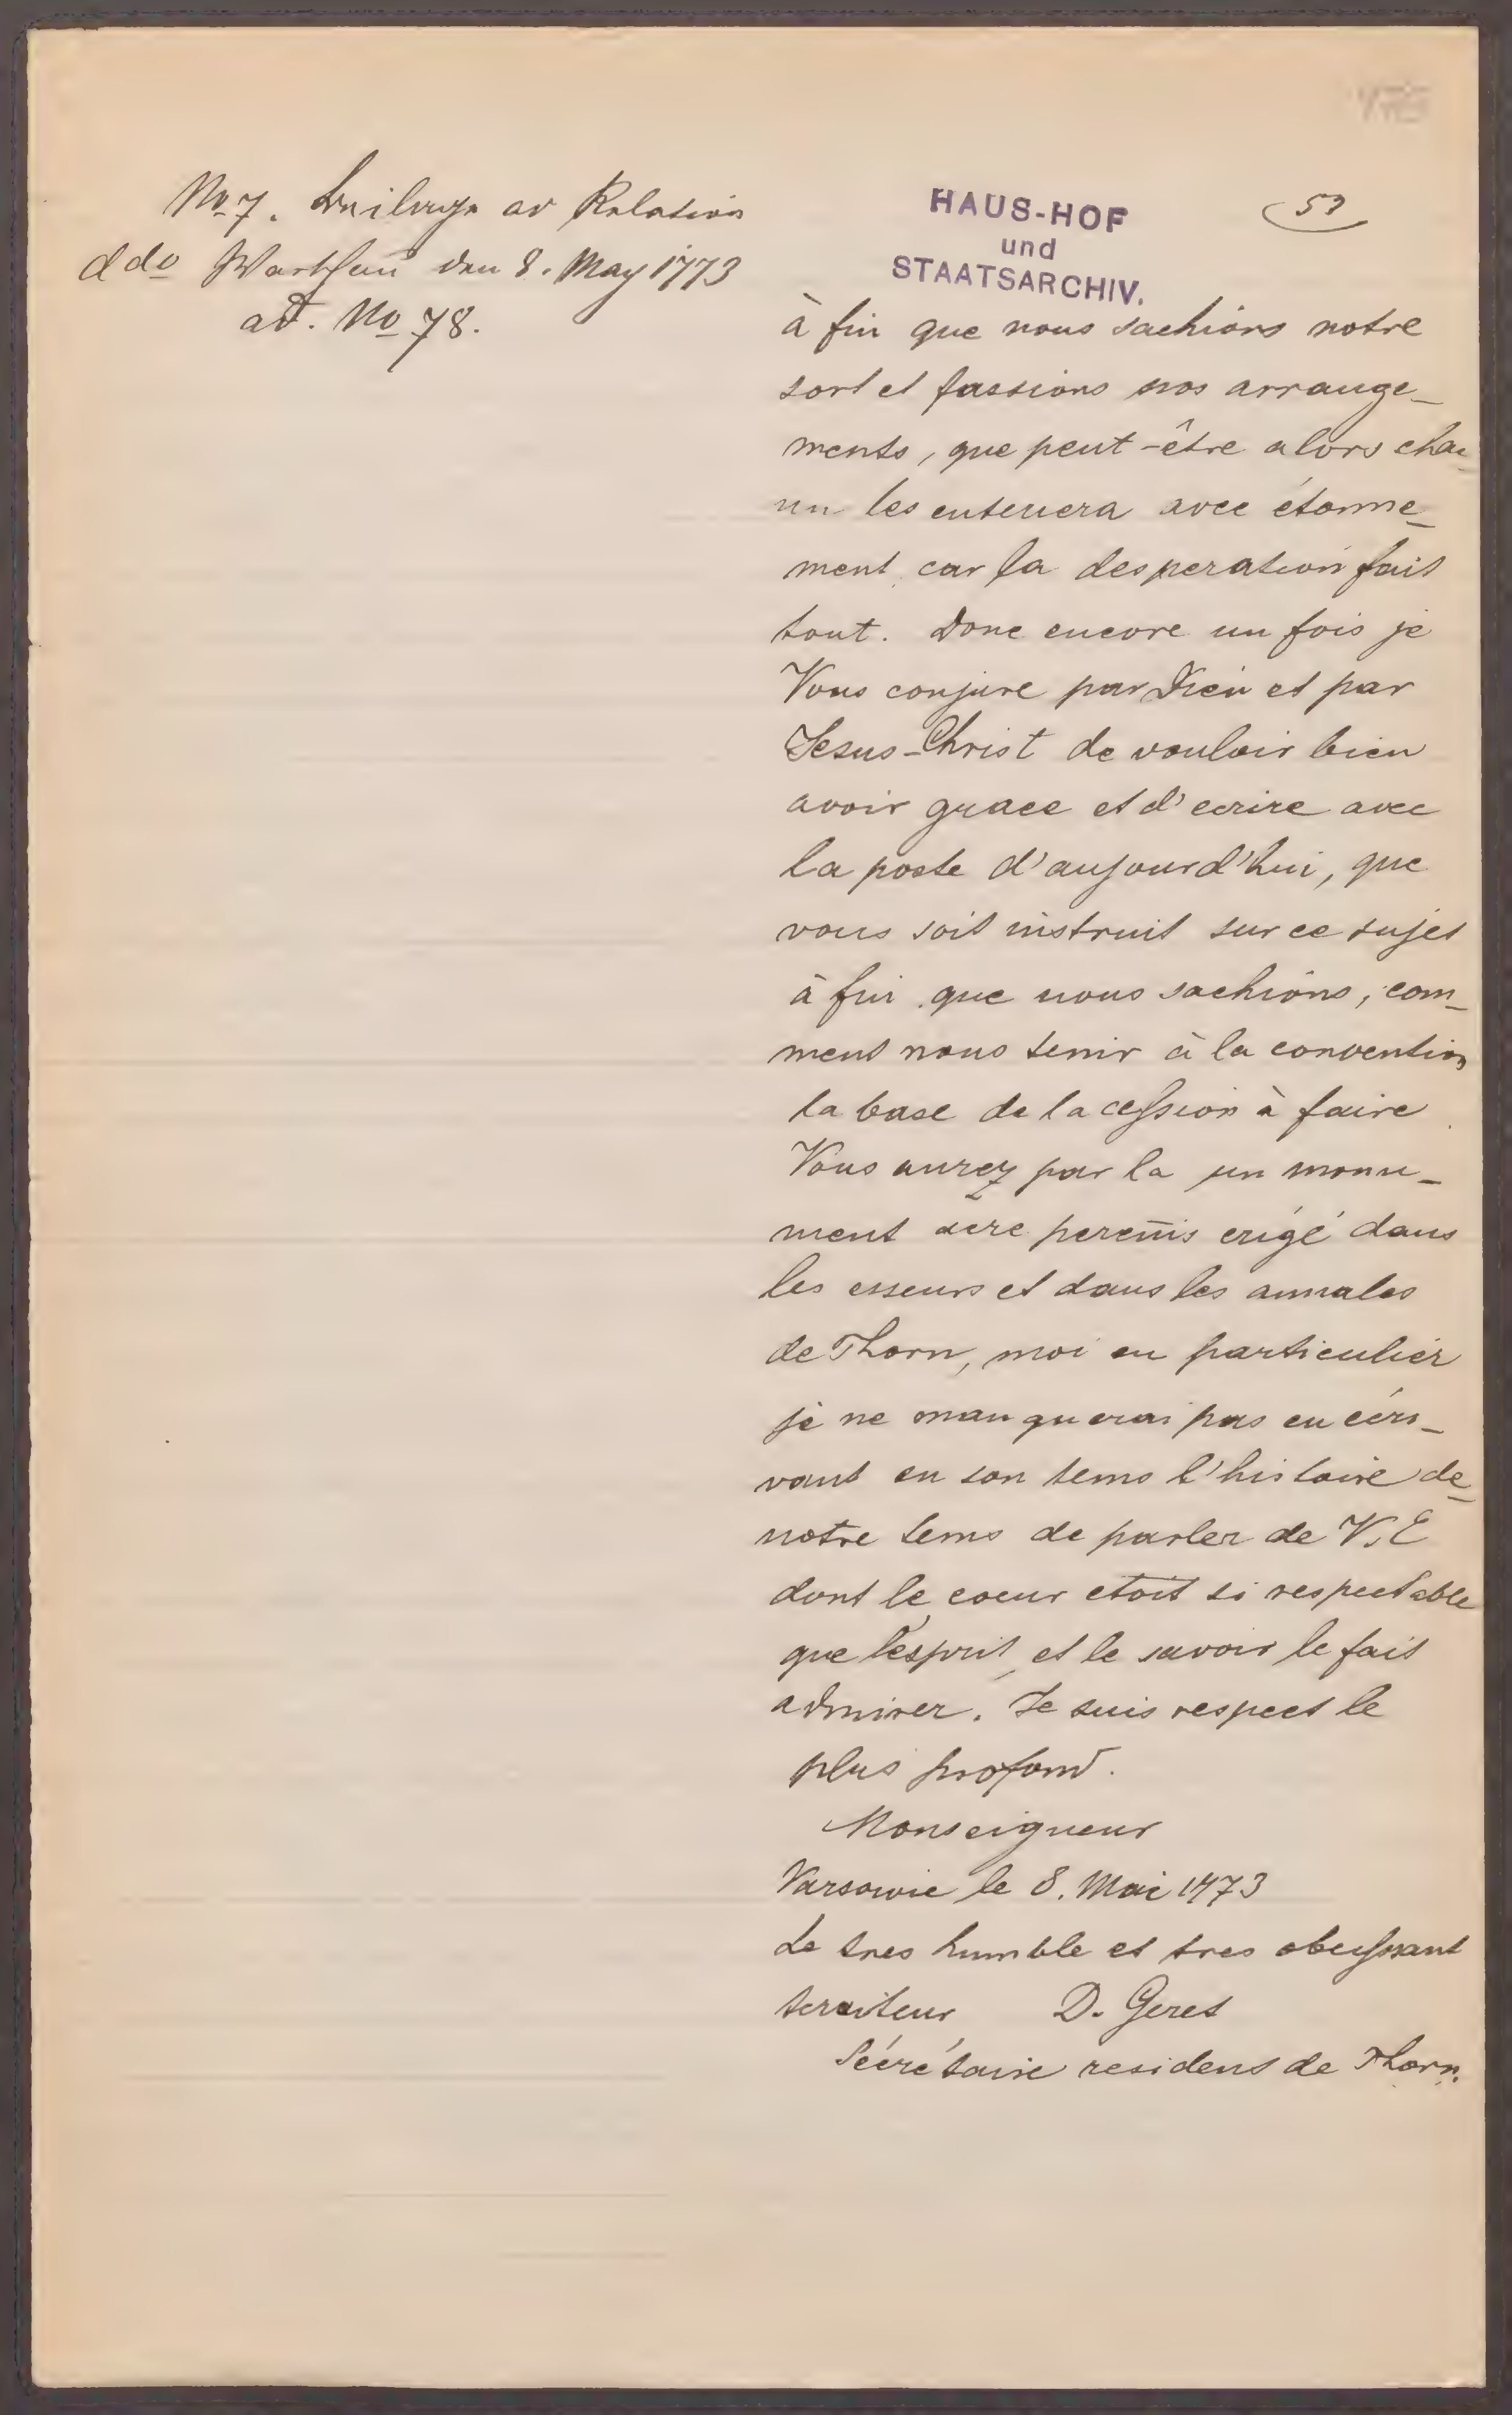 No 7. Beilage ad Relation
ddo Warschau den 8. May 1773
ad. No 78.
HAUS-HOF
und
STAATSARCHIV.
53
à fin que nous sachions notre
sort et fassions nos arrange-
ments, que peut-être alors chac
un les entenera avec étonne-
ment car la desperation fait
tout. Donc encore un fois je
Vous conjure par Dieu et par
Jesus-Christ de vouloir bien
avoir grace et d'ecrire avec
la poste d'aujourd'hui, que
vous soit instruit sur ce sujet
à fin que nous sachions, com-
ment nous tenir à la convention
la base de la cession à faire
Vous aurez par la un monu-
ment aere perennis erigé dans
les et dans les annales
de Thorn, moi en particulier
je ne manquerai pas en écri-
vant en son tems l'histoire de
notre tems de parler de V. E
dont le coeur etoit si respectable
que l'esprit et le savoir le fait
admirer. Je suis respect le
plus profond.
Monseigneur
Varsowie le 8. Mai 1773
Le tres humble et tres obeissant
serviteur D. Geret
Sécrétaire residens de Thorn.